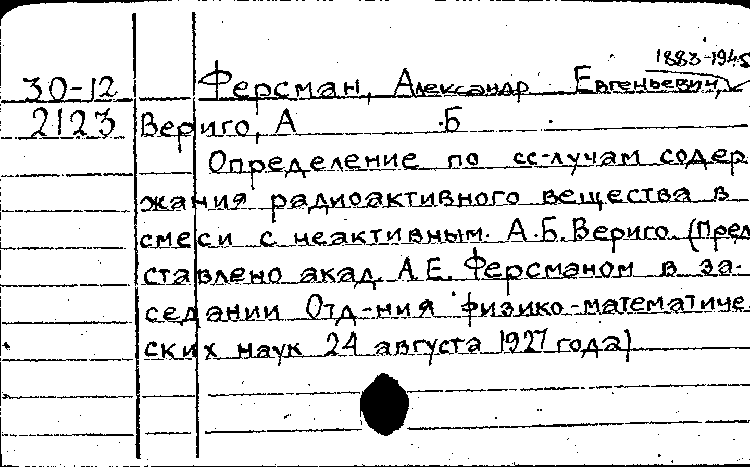 1883-1945
30-12 Ферсман, Александр Евгеньевич,
2123 Вериго, А .Б .
Определение по сс-лучам содер
жания радиоактивного вещества в
смеси с неактивным. А.Б. Вериго. (Пред
ставлено акад. А.Е. Ферсманом в за-
седании Отд-ния физико-математиче
ских наук 24 августа 1927 года)